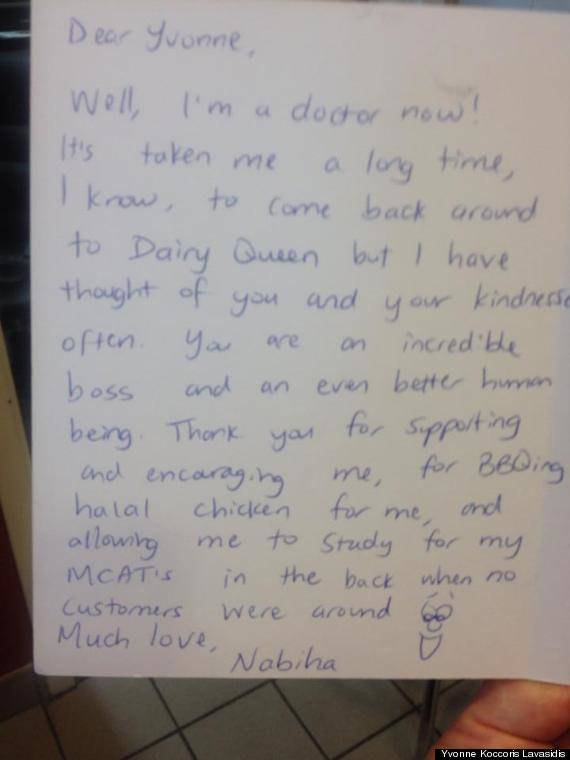 Dear Yvonne,
Well, I'm a doctor now!
It's taken me a long time,
I know, to come back around
to Dairy Queen but I have
thought of you and your kindnesse
often. You are an incredible
boss and an even better human
being. Thank you for supporting
and encouraging me, for BBQing
halal chicken for me, and
allowing me to study for my
MCAT's in the back when no
customers were around
Much love,
Nabiha
Yvonne Koccoris Lavasidis